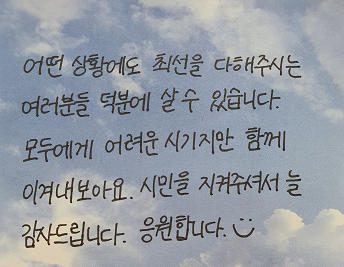 어떤 상황에도 최선을 다해주시는
여러분들 덕분에 살 수 있습니다.
모두에게 어려운 시기지만 함께
이겨내보아요. 시민을 지켜주셔서 늘
감사드립니다. 응원합니다.